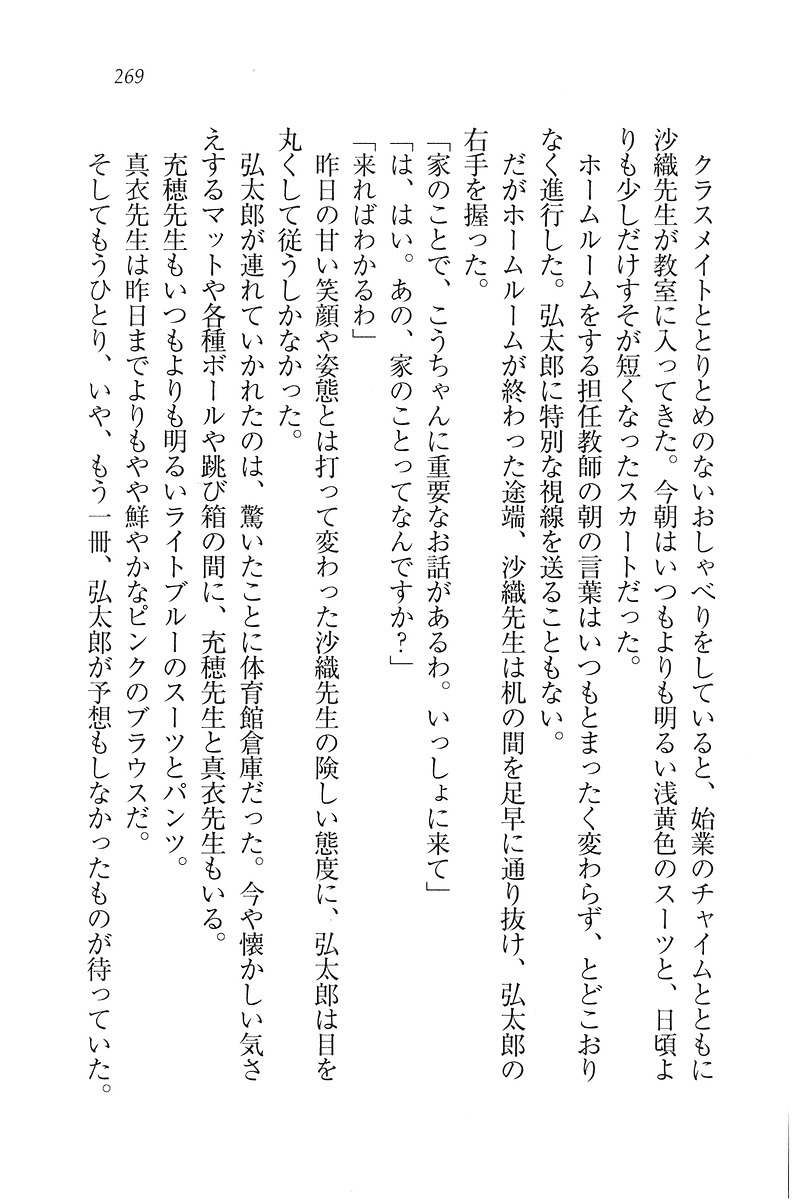 269
クラスメイトととりとめのないおしゃべりをしていると、始業のチャイムとともに
沙織先生が教室に入ってきた。今朝はいつもよりも明るい浅黄色のスーツと、日頃よ
りも少しだけすそが短くなったスカートだった。
ホームルームをする担任教師の朝の言葉はいつもとまったく変わらず、とどこおり
なく進行した。弘太郎に特別な視線を送ることもない。
だがホームルームが終わった途端、沙織先生は机の間を足早に通り抜け、弘太郎の
右手を握った。
「家のことで、こうちゃんに重要なお話があるわ。いっしょに来て」
「は、はい。あの、家のことってなんですか？」
「来ればわかるわ」
昨日の甘い笑顔や姿態とは打って変わった沙織先生の険しい態度に、弘太郎は目を
丸くして従うしかなかった。
弘太郎が連れていかれたのは、驚いたことに体育館倉庫だった。今や懐かしい気さ
えするマットや各種ボールや跳び箱の間に、充穂先生と真衣先生もいる。
充穂先生もいつもよりも明るいライトブルーのスーツとパンツ。
真衣先生は昨日までよりもやや鮮やかなピンクのブラウスだ。
そしてもうひとり、いや、もう一冊、弘太郎が予想もしなかったものが待っていた。